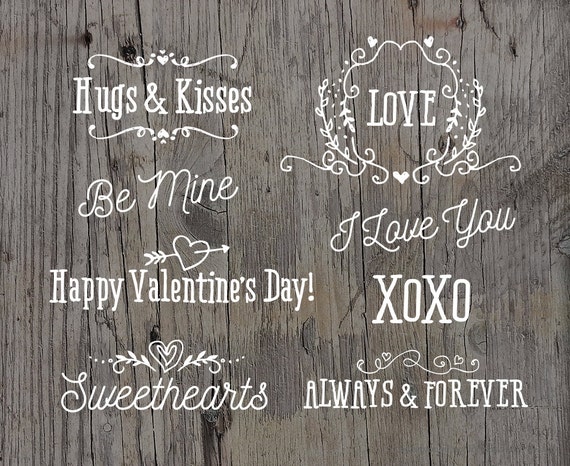 Hugs & Kisses
LOVE
Be Mine
I Love You
Happy Valentine's Day!
XOXO
Sweethearts
ALWAYS & FOREVER